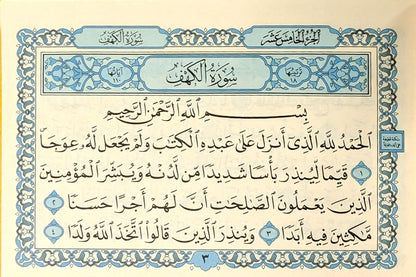 الجزء الخامس عشر
سورة الكهف
ترتيبها ١٨
سُورَةُ الْكَهْفِ
آياتها ١١٠
بِسْمِ اللَّهِ الرَّحْمَٰنِ الرَّحِيمِ
الْحَمْدُ لِلَّهِ الَّذِي أَنزَلَ عَلَىٰ عَبْدِهِ الْكِتَٰبَ وَلَمْ يَجْعَل لَّهُ عِوَجَا
١ قَيِّمًا لِّيُنذِرَ بَأْسًا شَدِيدًا مِّن لَّدُنْهُ وَيُبَشِّرَ الْمُؤْمِنِينَ
الَّذِينَ يَعْمَلُونَ الصَّٰلِحَٰتِ أَنَّ لَهُمْ أَجْرًا حَسَنًا ٢
مَّٰكِثِينَ فِيهِ أَبَدًا ٣ وَيُنذِرَ الَّذِينَ قَالُوا اتَّخَذَ اللَّهُ وَلَدًا ٤
٣